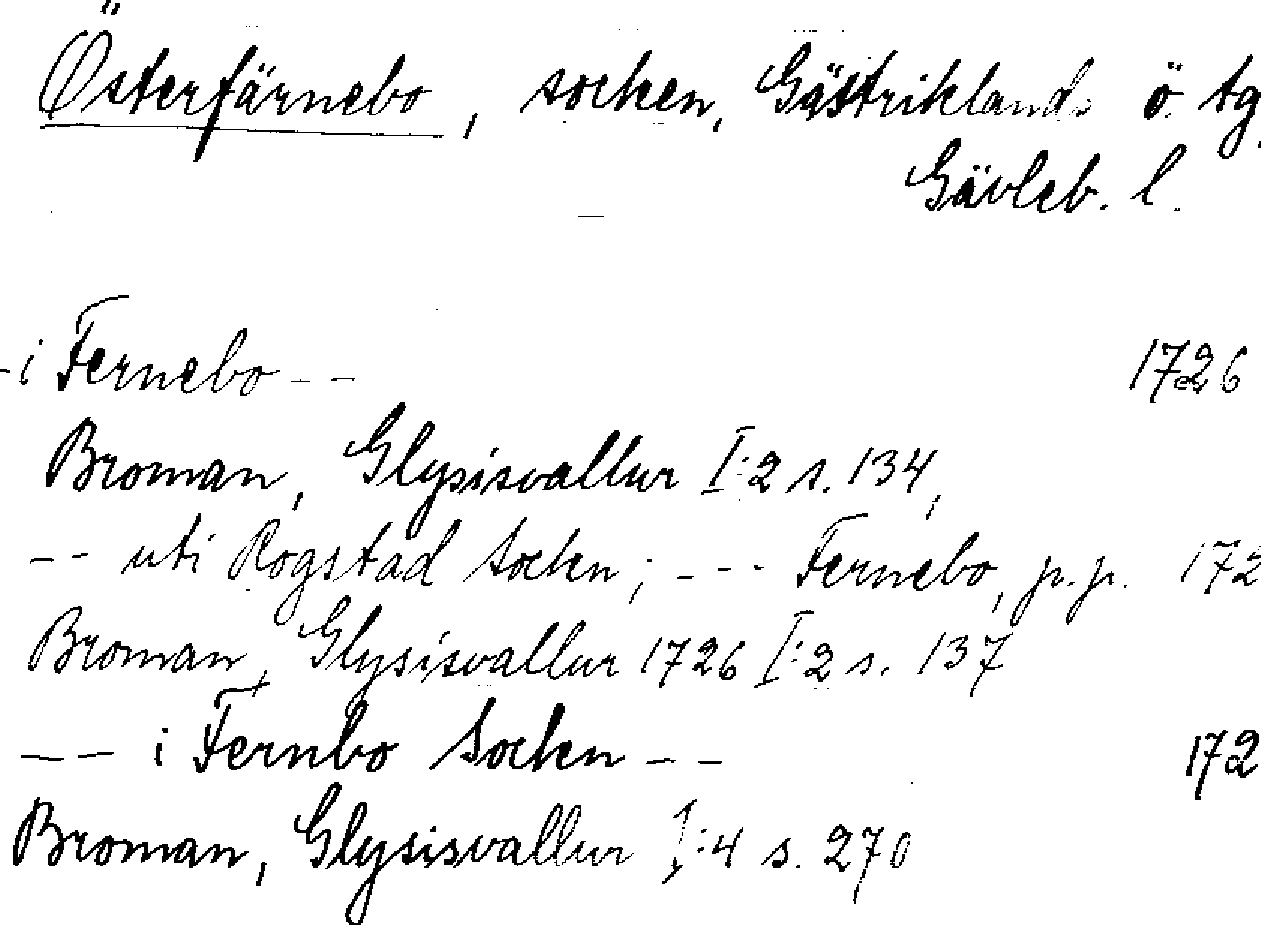 Österfärnebo, socken, Gästriklands ö. tg.
Gävleb. l.
- i Fernebo - - 1726
Broman, Glysisvallur I:2 s. 134,
- - uti Rogstad Sockn; - - - Fernebo, p.p. 172
Broman, Glysisvallur 1726 I:2 s. 137
- - i Fernbo Sockn - - 172
Broman, Glysisvallur I:4 s. 270